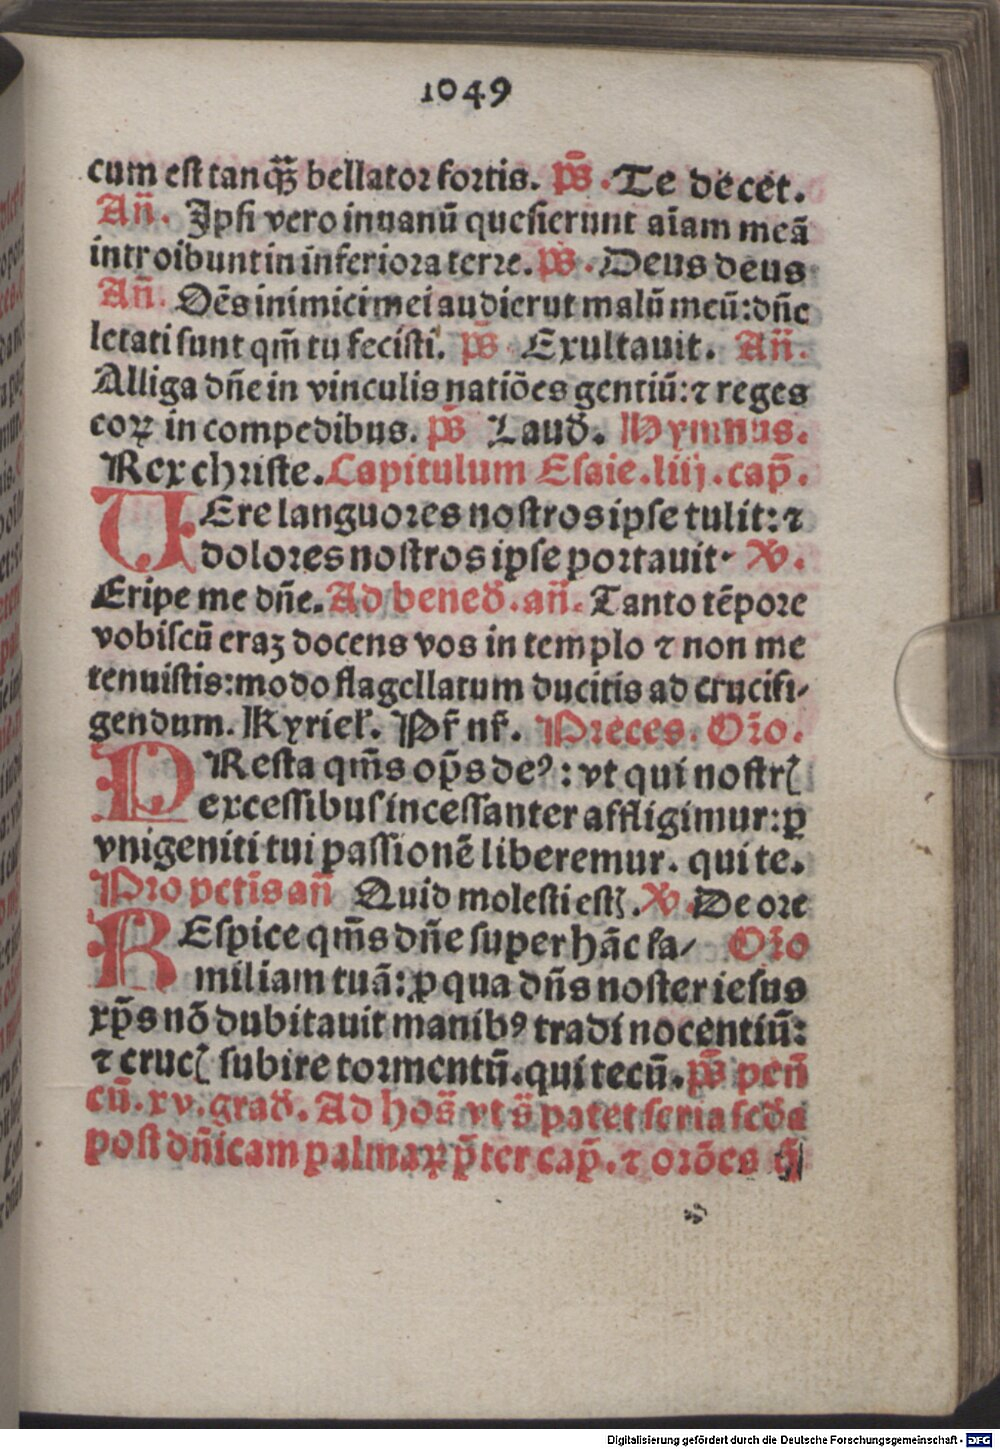 1049
cum est tanqꝫ̄ bellator fortis. ps̄. Te decet.
An̄. Ipsi vero inuanū quesierunt aīam meā
introibunt in inferiora terre. ps̄. Deus deus
An̄. Oēs inimici mei audierūt malū meū: dn̄e
letati sunt qm̄ tu fecisti. ps̄. Exultauit. An̄.
Alliga dn̄e in vinculis natiōes gentiū: ⁊ reges
coꝝ in compedibus. ps̄ Laud̄. Hymnus.
Rex christe. Capitulum Esaie. liij. cap̄.
UEre languores nostros ipse tulit: ⁊
dolores nostros ipse portauit. ꝟ.
Eripe me dn̄e. Ad bened̄. an̄. Tanto tēpore
vobiscū eraꝫ docens vos in templo ⁊ non me
tenuistis: modo flagellatum ducitis ad crucifi⸗
gendum. Kyriel̄. Pr̄ nr̄. Preces. Or̄o.
PResta qm̄s op̄s deꝰ: vt qui nostrꝭ
excessibus incessanter affligimur: ꝑ
vnigeniti tui passionē liberemur. qui te.
Pro petīs an̄ Quid molesti estꝭ. ꝟ. De ore
REspice qm̄s dn̄e super hāc fa⸗ Or̄o
miliam tuā: ꝓ qua dn̄s noster iesus
xp̄s nō dubitauit manibꝰ tradi nocentiū:
⁊ crucꝭ subire tormentū. qui tecū. ps̄ pen̄
cū. xv. grad̄. Ad hos̄ vt s̄ patet feria scd̄a
post dn̄icam palmaꝝ p̄ter cap̄. ⁊ orōes